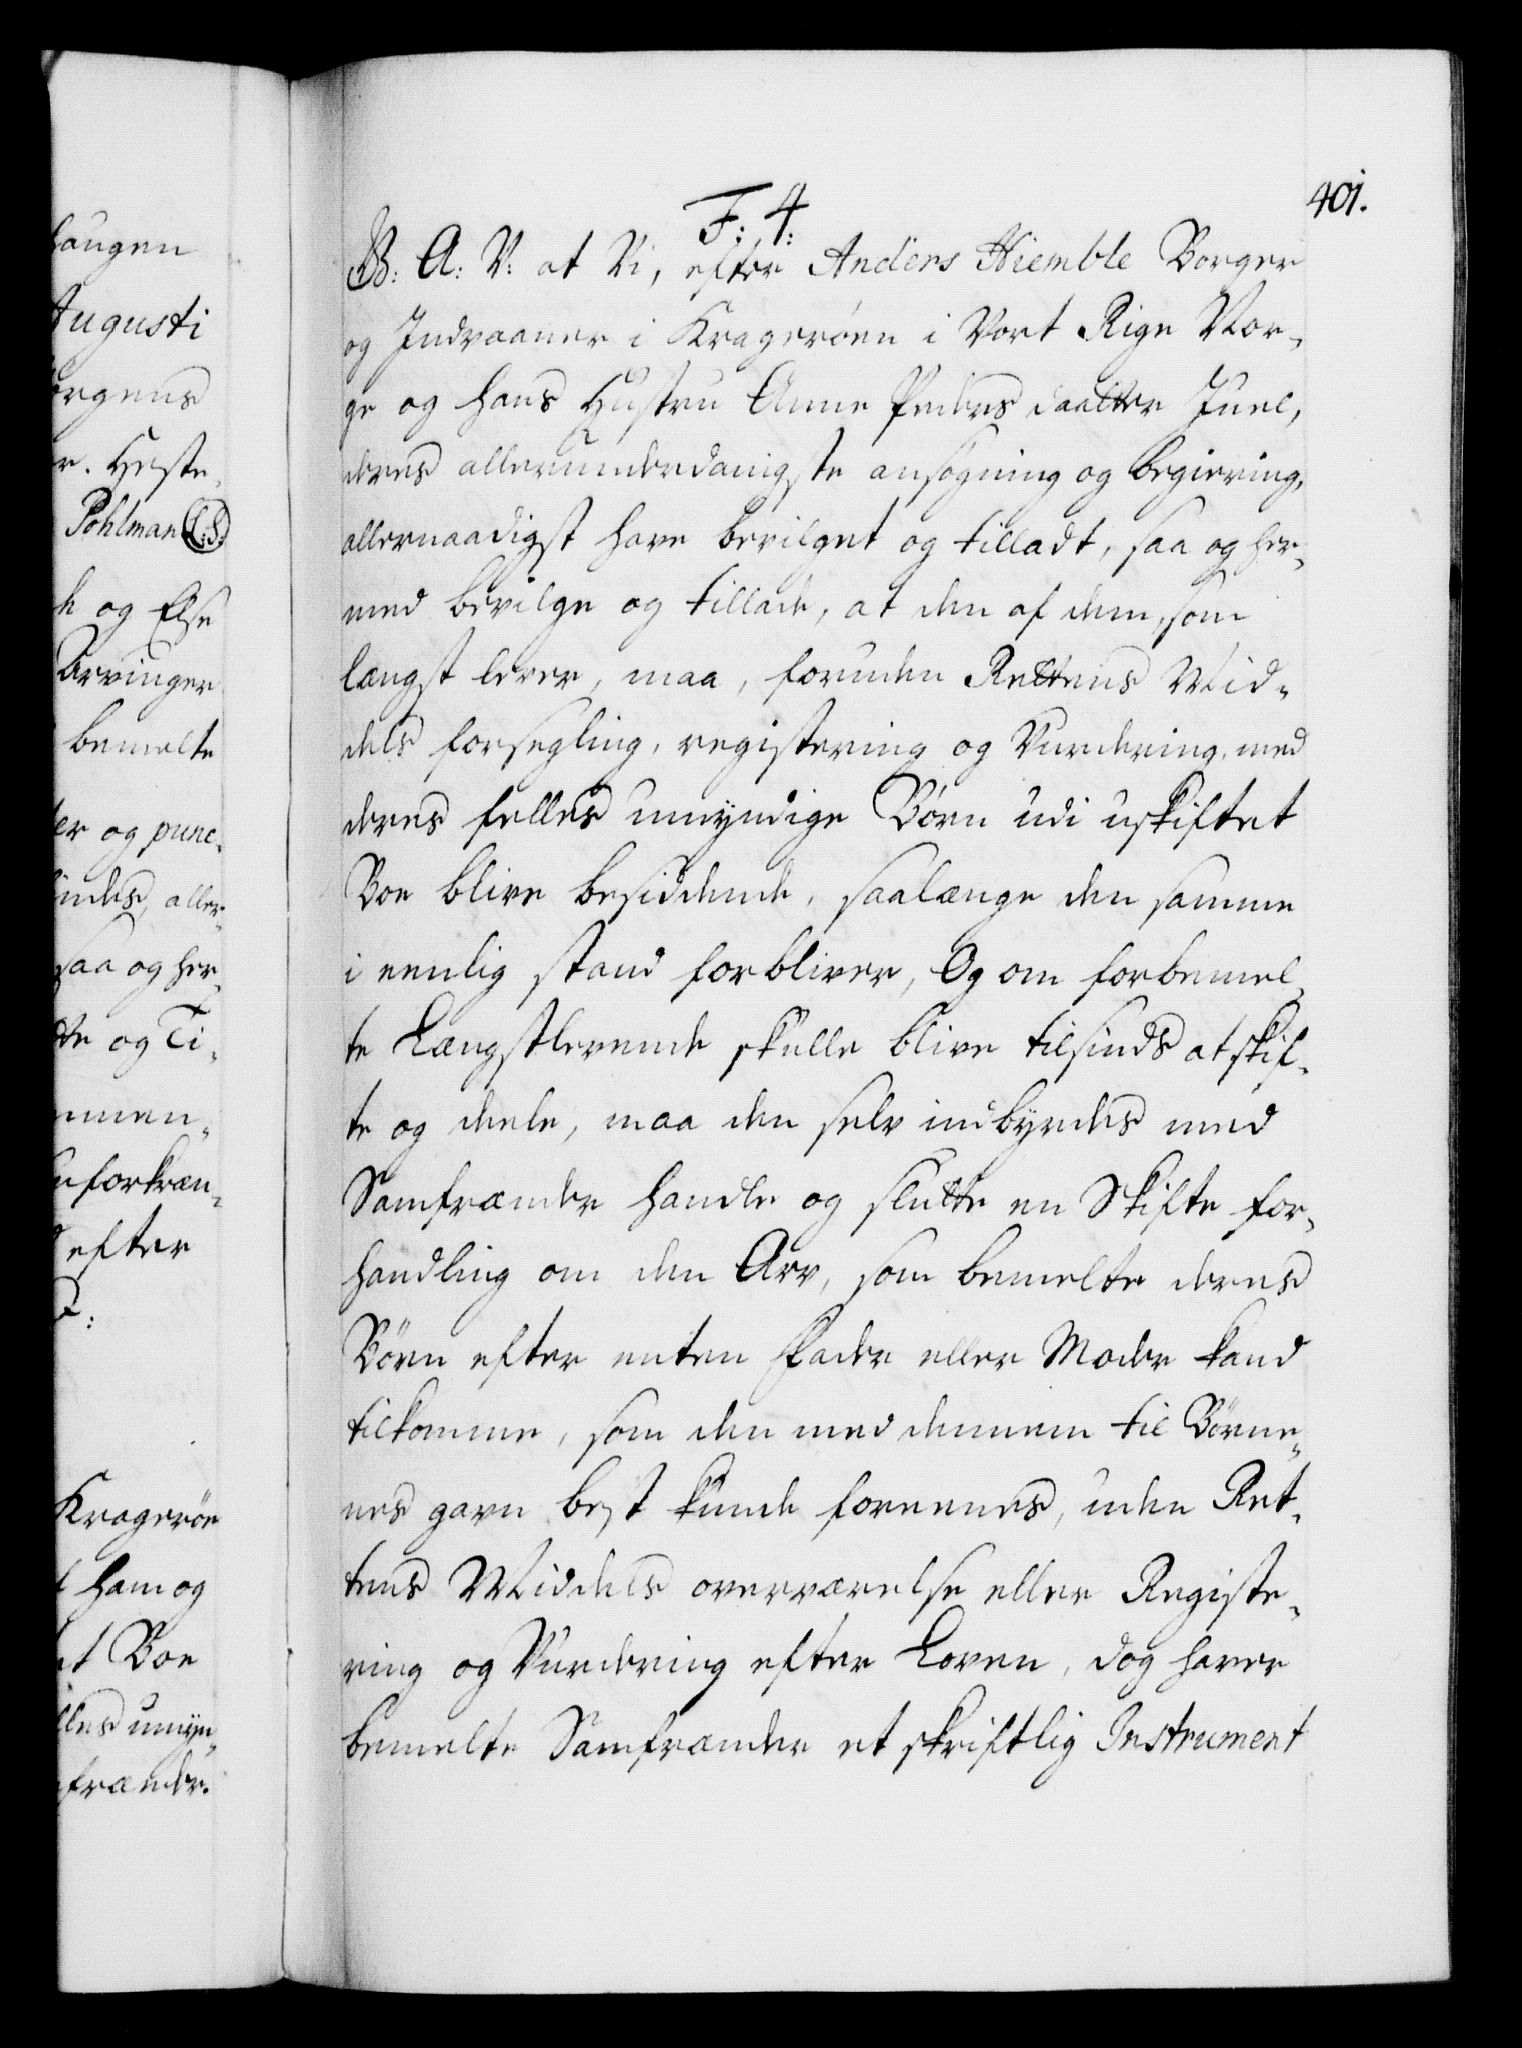 401.
F: 4:
G: A: V: at Vi, efter Anders Hiemble Borger
og Indvaaner i Kragerøen i Vort Rige Nor-
ge og hans Hustru Anne Peders daatter Juel,
deres allerunderdanigste ansøgning og begiering,
allernaadigst have bevilget og tilladt, saa og her-
med bevilge og tillade, at den af dem, som
længst lever, maa, foruden Rettens Mid-
dels forsegling, registering og Vurdering, med
deres felles umyndige Børn udi uskiftet
Boe blive besiddende, saalænge den samme
i eenlig stand forbliver, Og om forbemel-
te Længstlevende skulle blive tilsinds at skif-
te og deele, maa den selv indbyrdes med
Samfrænder handle og slutte en Skifte for-
handling om den Arv, som bemelte deres
Børn efter enten Fader eller Moder kand
tilkomme, som den med dennem til Børne-
nes gavn best kunde foreenes, uden Ret-
tens Middels overværelse eller Registe-
ring og Vurdering efter Loven, dog haver
bemelte Samfrænder et skriftlig Instrument
haugen
Augusti
ørgens
r. Heste-
Pohlman L:S:
h og Else
Arvinger
bemelte
er og punc-
indes, aller-
saa og her-
te og Ti-
mmen-
uforkræn-
efter
Kragerøe
ham og
et Boe
lles umyn-
frænder.